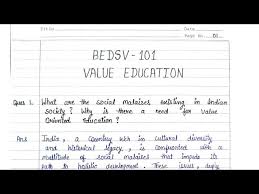 Date
Page No. 01
BEDSV-101
VALUE EDUCATION
Ques 1. What are the social malaises existing in Indian
society? Why is there a need for Value
Oriented Education?
Ans India, a country rich in cultural diversity
and historical legacy, is confronted with a
multitude of social malaises that impede its
path to holistic development. These issues, deeply